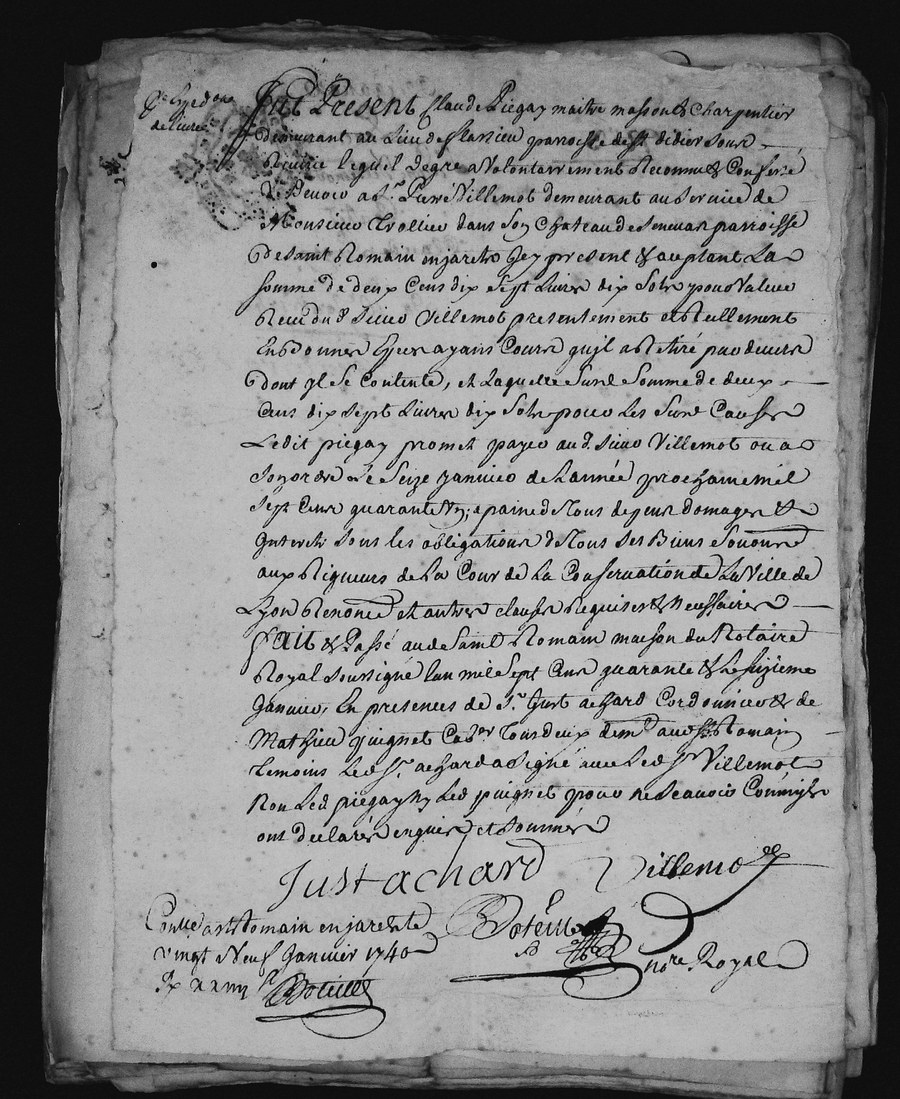 de livre
Fut Present Claude Piegay maitre masson & Charpentier
demeurant au Lieu de flassieu parroisse de st didier sous
Riverie lequel de gre a Volontairement Reconnu & Confesse
& Devoir a sr. Pierre Villemot demeurant au Service de
Monsieur Trollier dans son Chateau de Senevas parroisse
de Saint Romain en jarets Icy present & acceptant La
somme de deux Cens dix sept Livres dix Sols pour Valeur
Receu du d. Sieur Villemot presentement et Reellement
En donner Especes ayans Cours quil a Retiré par devers
dont yl se Contente, et Laquelle Susd. Somme de deux
Cens dix sept Livres dix Sols pour Les Susd. Causes
Ledit piegay promet payer au d. Sieur Villemot ou a
son ordre Le Seize janvier de Lannée prochaine mil
sept Cens quarante & un; a paine de Tous depens domages &
Interets sous les obligations de Tous Ses Biens Soumis
aux Rigueurs de La Cour de La Conservation de La Ville de
Lyon Renonce et autres clauses Requises & Necessaires
Fait & Passé au d. Saint Romain maison du Notaire
Royal soussigné lan mil Sept Cens quarante & Le seizieme
Janvier, En presences de Sr. Just achard Cordonnier & de
Mathieu guignet Cab.er Tous deux dem.t au d. st Romain
temoins Led. sr. achard a Signé avec Led. sr Villemot
Non Led. piegay ny Led. guignet pour ne Scavoir Comme ils
ont declarés enquis et sommés
Just achard Villemot
Conlle a st Romain en jarets le
vingt Neuf Janvier 1740
nore Royal